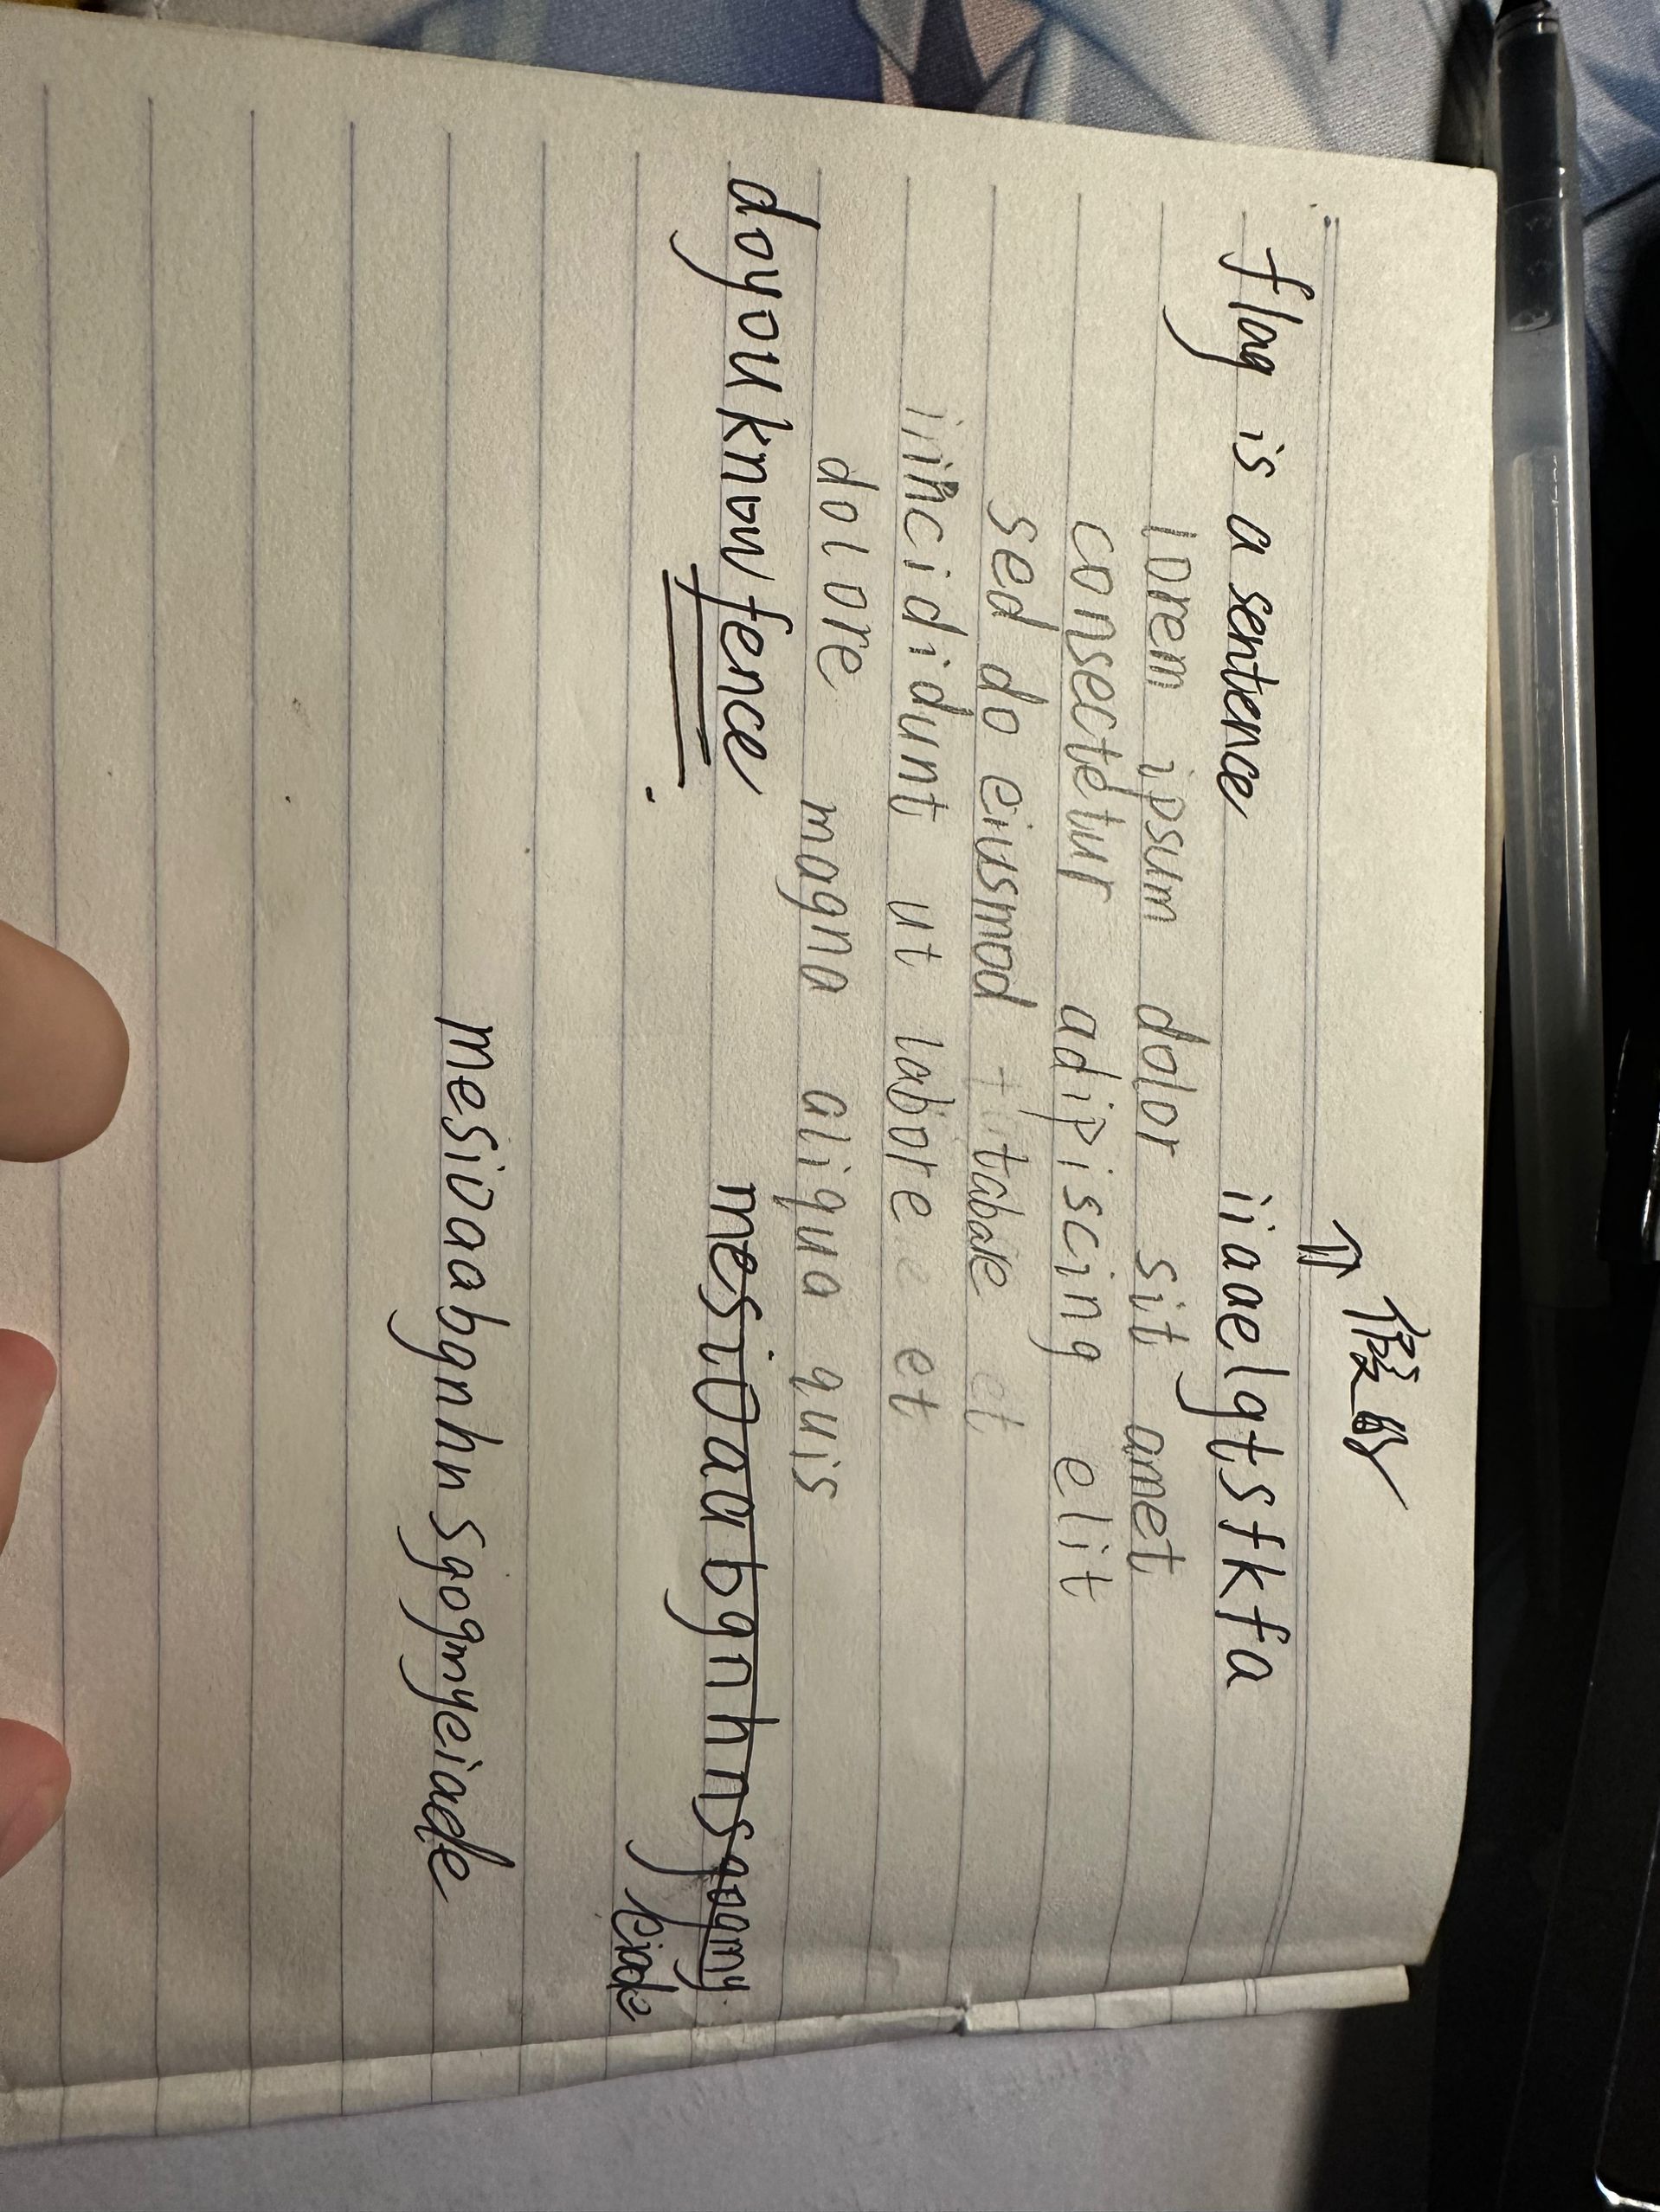 ⇑ 假的
flag is a sentence iiaaelgtsfkfa
lorem ipsum dolor sit amet
consectetur adipiscing elit
sed do eiusmod tabare et
incididunt ut labore et
dolore magna aliqua quis
doyouknowfence mesioaabgnhnsgogmy
eiade
mesioaabgnhnsgogmyeiade